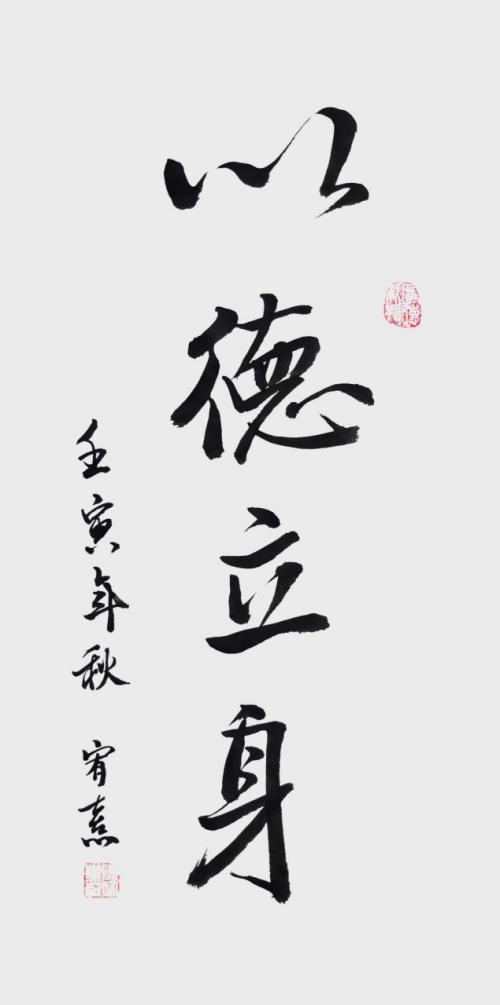 以德立身
壬寅年秋 宥熹